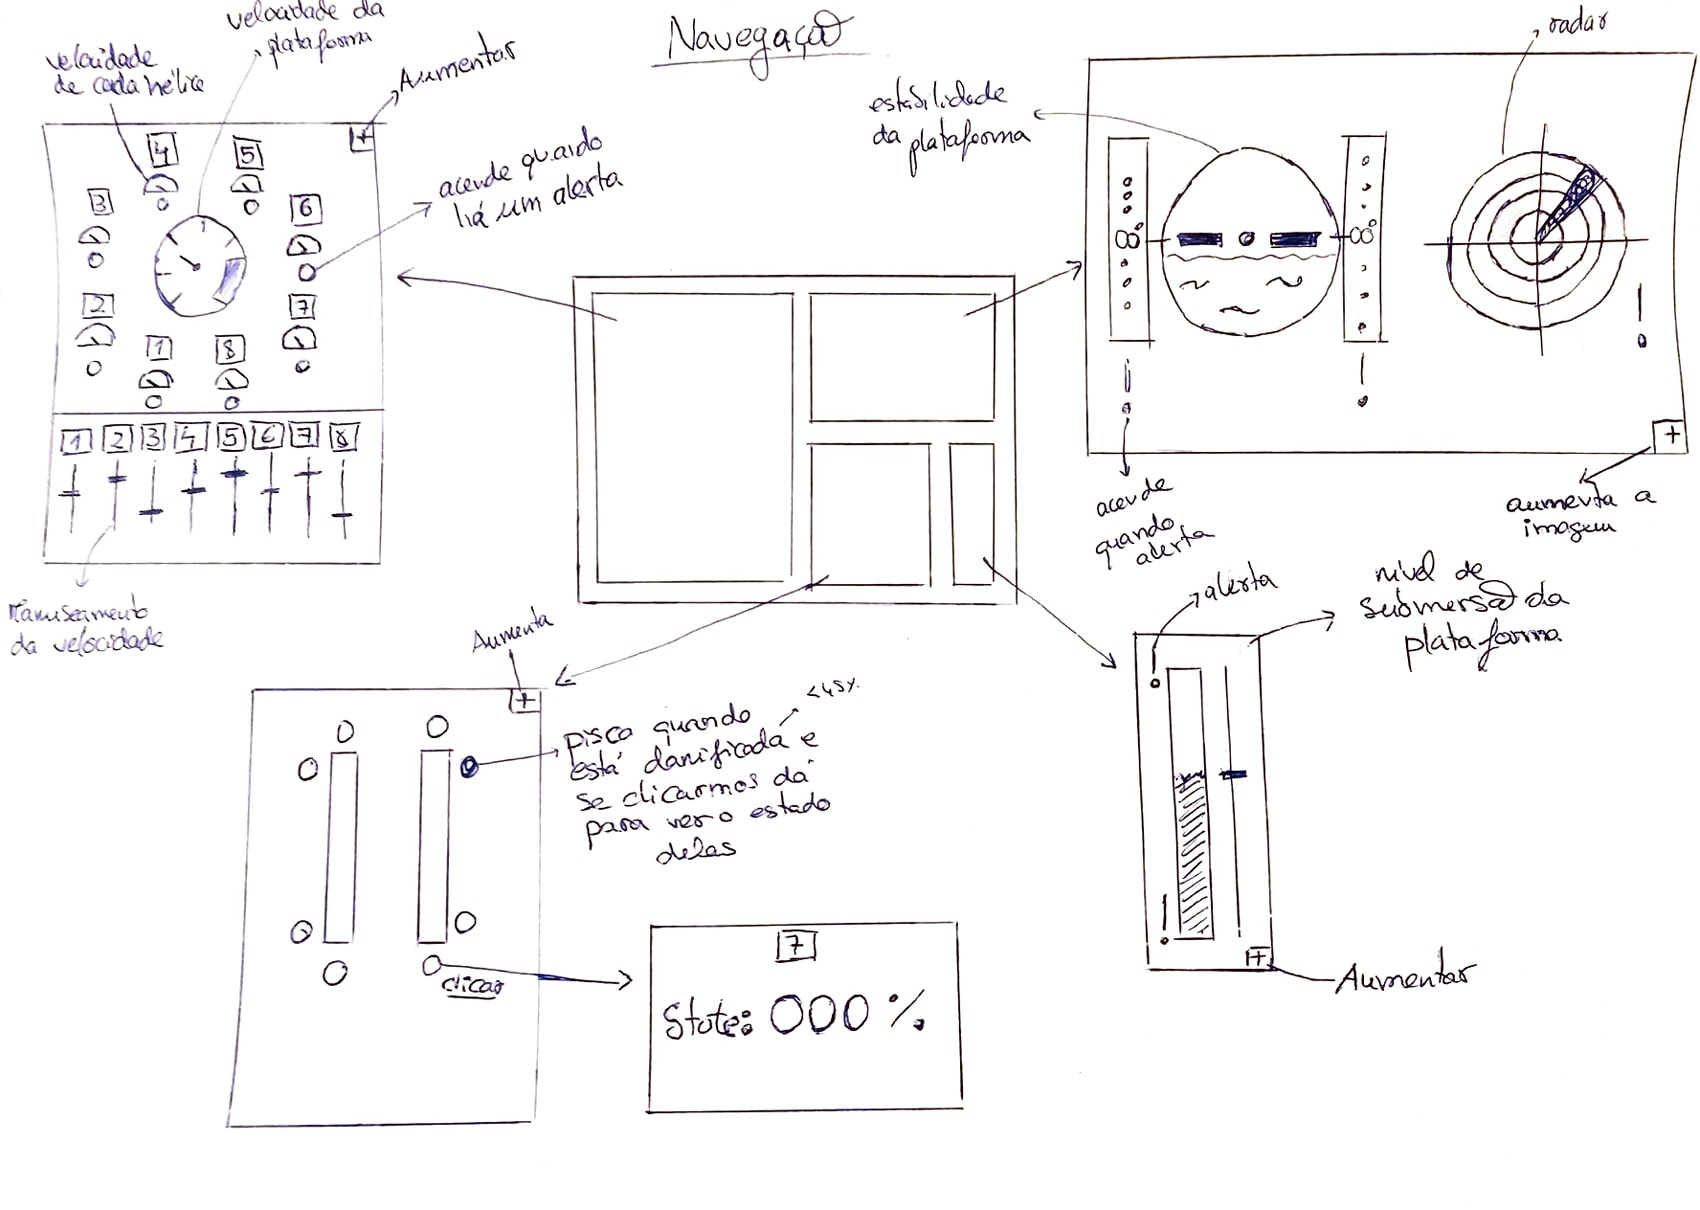 Navegação
velocidade
de cada hélice
velocidade da
plataforma
Aumentar
+
4
5
3
6
2
7
1
8
acende quando
há um alerta
1 2 3 4 5 6 7 8
Manuseamento
da velocidade
estabilidade
da plataforma
radar
!
!
!
+
acende
quando
alerta
aumenta a
imagem
Aumenta
+
pisca quando
está danificada e
<45%
se clicarmos dá
para ver o estado
delas
clicar
7
State: 000 %
alerta
nível de
submersão da
plataforma
!
!
+
Aumentar